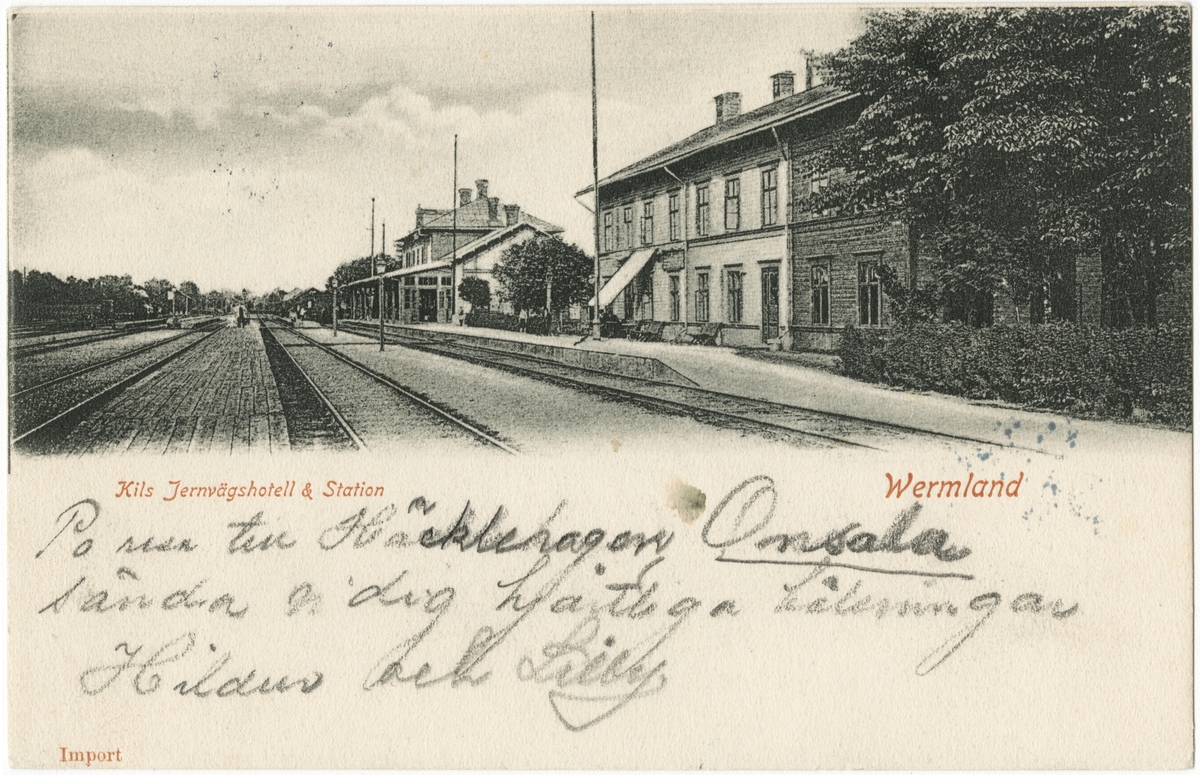 Kils Jernvägshotell & Station
Wermland
På resa till Häcklehagen Onsala
sända vi dig hjärtliga hälsningar
Hildur och Lilly
Import